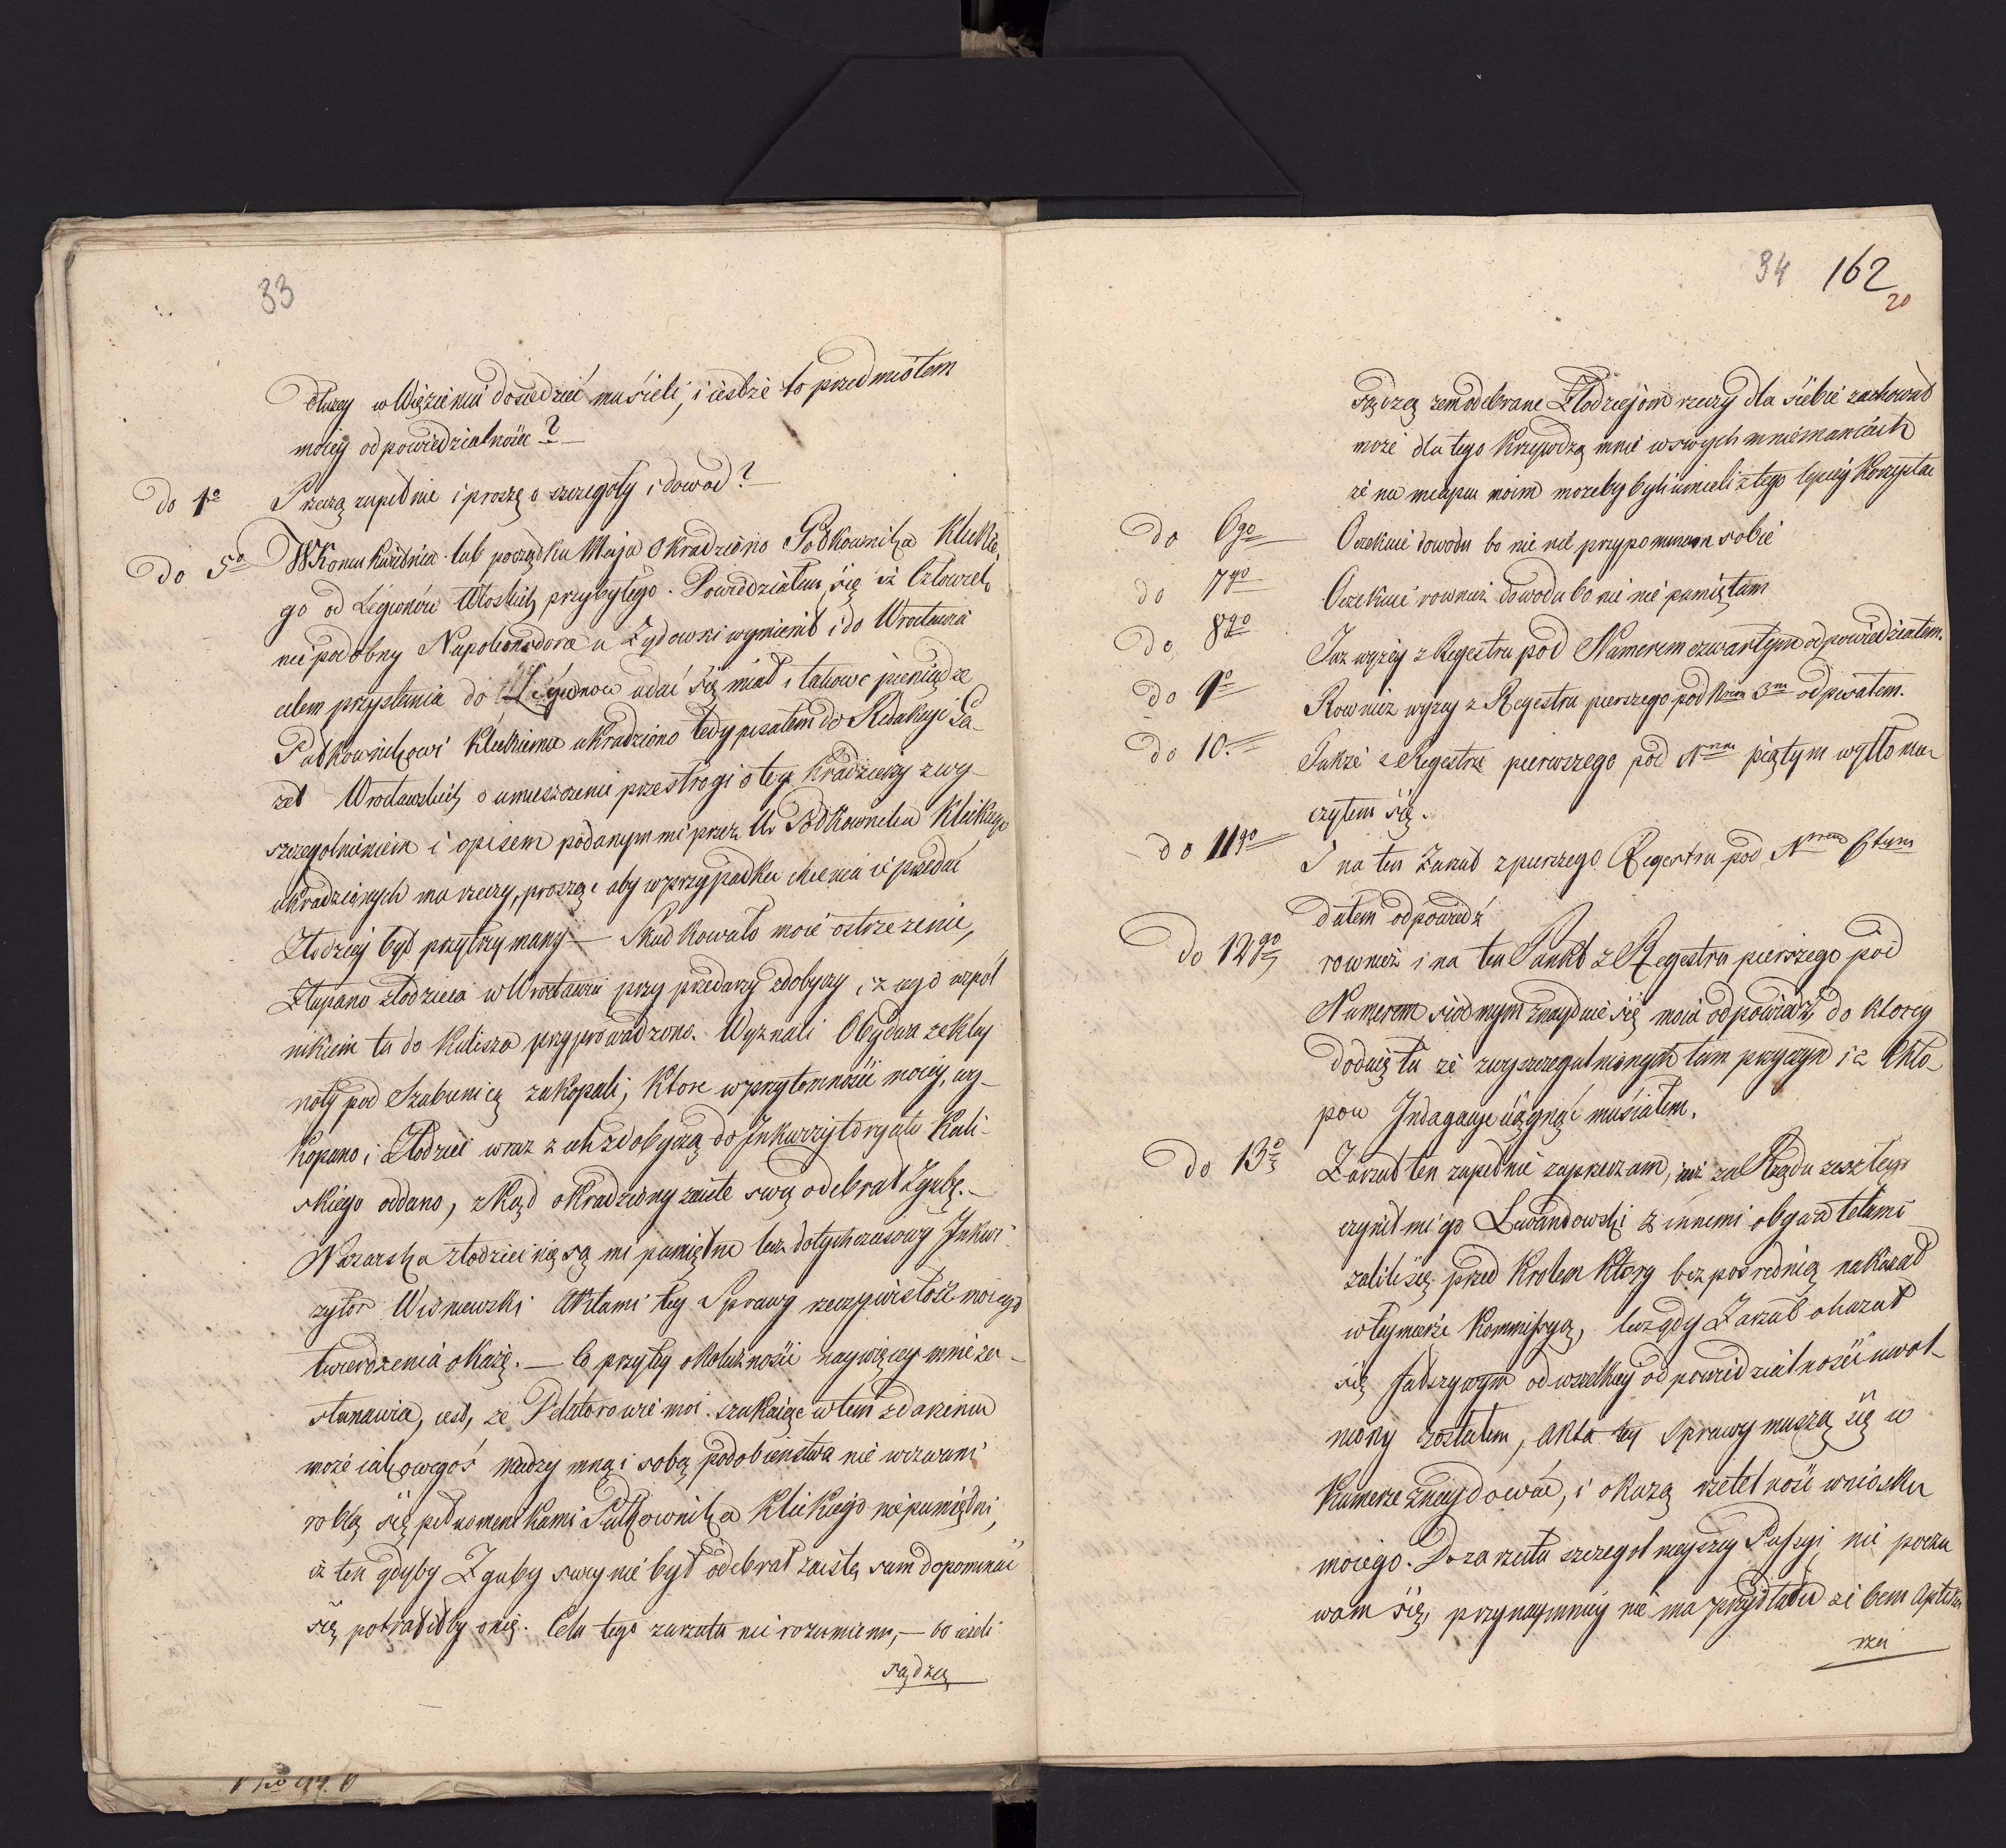 33
dłuzey w Więzieniu dosiedzieć musieli, i iestże to przedmiotem
moiey odpowiedzialności?
do 4o Przeczą zupełnie i proszę o szczegoły i dowod?
do 5o W Koncu Kwietnia lub początku Maja Okradziono Półkownika Klickie
go od Legionów Włoskich przybyłego. Dowiedziałem się iż Człowiek
nie podobny Napoleonsdora u Żydowki wymienił i do Wrocławia
celem przysłania do udać się miał i takowe pieniądze
Pułkownikowi Klickiemu ukradziono tedy pisałem do Redakcyi Ga-
zet Wrocławskich o umieszczenie przestrogi o tey Kradzieży z wy-
szczegolnieniem i opisem podanym mi przez W Półkownika Klickiego
ukradzionych mu rzeczy, prosząc aby w przypadku chcenia ie przedać
Złodziey był przytrzymany — Skutkowało moie ostrzeżenie,
Złapano złodzieia w Wrocławiu przy przedarzy zdobyczy, i z iego wspól
nikiem tu do Kalisza przyprowadzono. Wyznali Obydwa że Kley
noty pod Szubienicą zakopali, Ktore w przytomności moiey, wy-
kopano i Złodziei wraz z ich zdobyczą do Inkwizytoryatu Kali-
skiego oddano, zkąd okradziony zaiste swą odebrał Zgubę. —
Nazwiska złodziei nie są mi pamiętne lecz dotychczasowy Inkwi
zytor Wisniewski Aktami tey Sprawy rzeczywistość moiego
twierdzenia okaże. — Co przy tey okoliczności naywięcey mnie za-
stanawia, iest, że Delatorowie moi szukaiąc w tem zdarzeniu
może iakowegoś między mną i sobą podobieństwa nie wezwani
robią się pełnomocnikami Pułkownika Klickiego niepamiętni,
iż ten gdyby Zguby swey nie był odebrał zaiste sam dopominać
się potrafiłby o nię. Celu tego zarzutu nie rozumiem, — bo ieżeli
sądzą
34 162
20
sądzą żem odebrane Złodziejom rzeczy dla siebie zachował
może dla tego Krzywdzą mnie w swych mniemaniach
że na mieyscu moim możeby byli umieli z tego lepiey Korzystać
do 6go Oczekuię dowodu bo nic nie przypominam sobie
do 7go Oczekuię rownież dowodu bo nic nie pamiętam
do 8go Juz wyżey z Regestru pod Numerem czwartym odpowiedziałem.
do 9o Rownież wyzey z Regestru pierszego pod Nrem 3m odpisałem.
do 10. Także z Regestru pierwszego pod Nrem piątym wytłoma
czyłem się.
do 11go I na ten Zarzut z pierszego Regestru pod Nrem 6tym
dałem odpowiedź
do 12go rownież i na ten Punkt z Regestru pierszego pod
Numerem siodmym znayduie się moia odpowiedź, do Ktorey
dodaię tu że z wyszczegulnionych tam przyczyn i z Chło-
pow Indagacye ciągnąć musiałem.
do 13o Zarzut ten zupełnie zaprzeczam, iuż za Rządu zeszłego
czynił mi go Lewandowski z innemi obywatelami
żalili się przed Krolem Ktory bezpośrednią nakazał
w tey mierze Kommissyą, lecz gdy Zarzut okazał
się fałszywym od wszelkiey odpowiedzialności uwol-
niony zostałem, Akta tey Sprawy muszą się w
Kamerze znaydować, i okażą rzetelność wniosku
moiego. Do zarzutu szczegolnieyszey Passyi nie poczu
wam się, przynaymniey nie ma przykładu że bem Apteka
rza